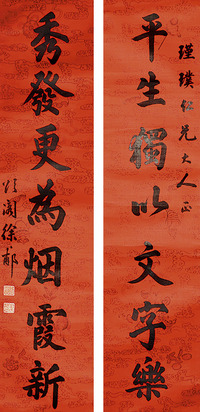 瑾璞仁兄大人正
平生獨以文字樂
秀發更為烟霞新
頌閣徐郙